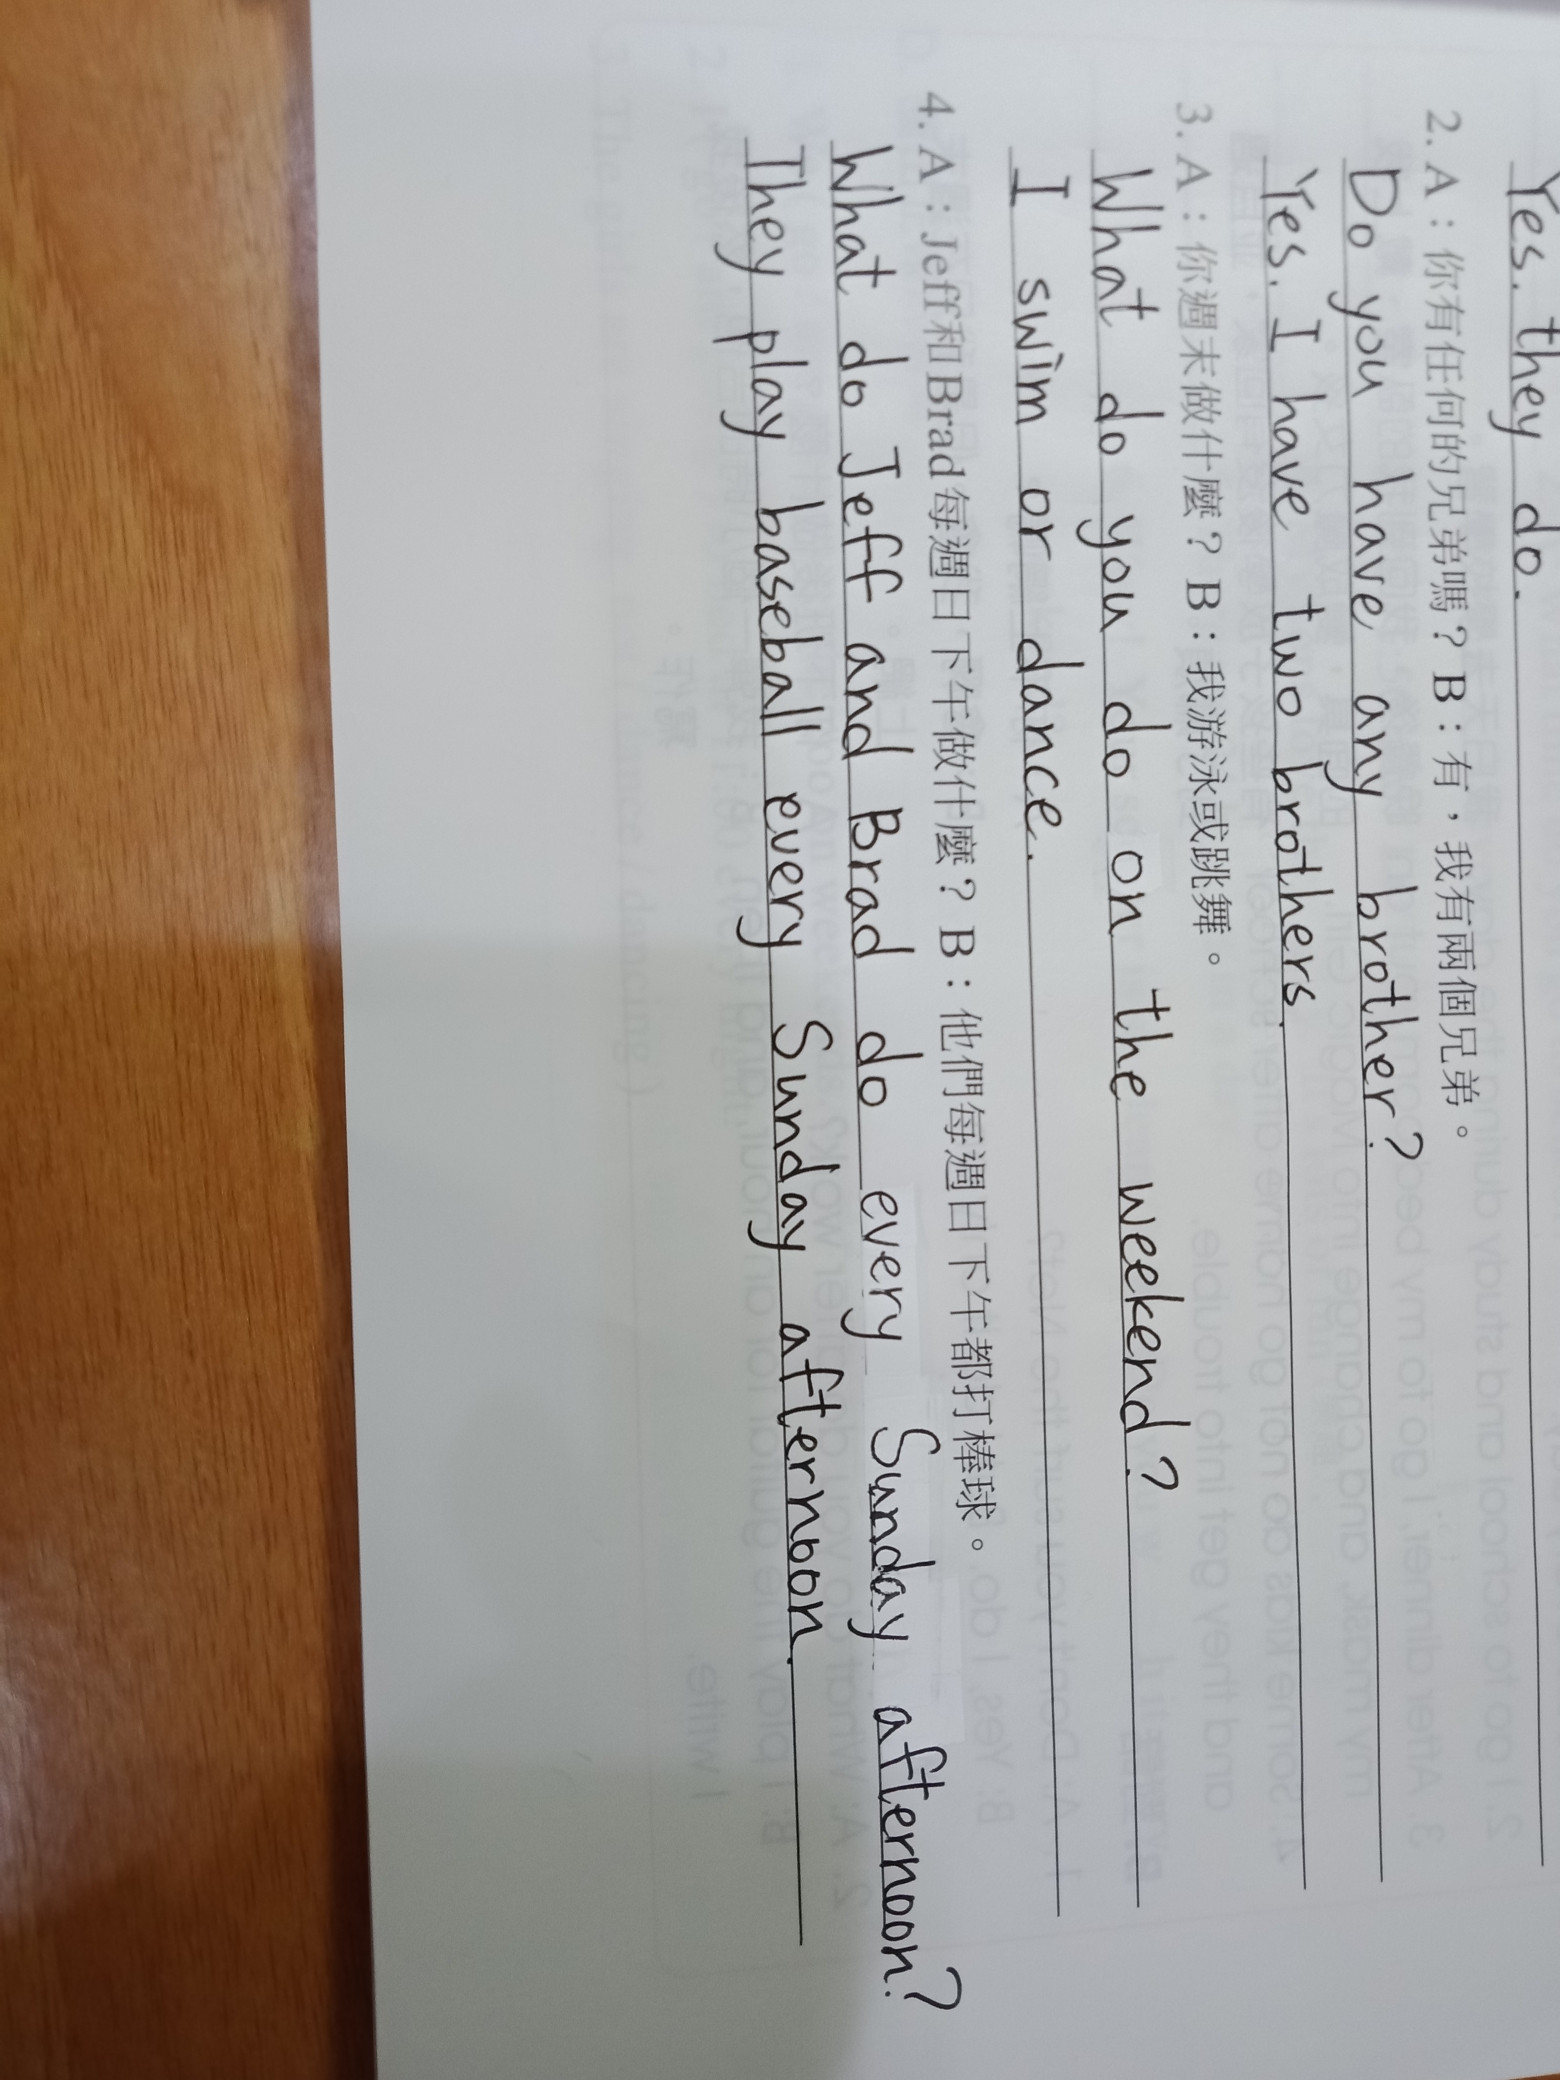 Yes. they do.
2. A：你有任何的兄弟嗎？B：有，我有兩個兄弟。
Do you have any brother?
Yes. I have two brothers.
3. A：你週末做什麼？B：我游泳或跳舞。
What do you do on the weekend?
I swim or dance.
4. A：Jeff和Brad每週日下午做什麼？B：他們每週日下午都打棒球。
What do Jeff and Brad do every Sunday afternoon?
They play baseball every Sunday afternoon.